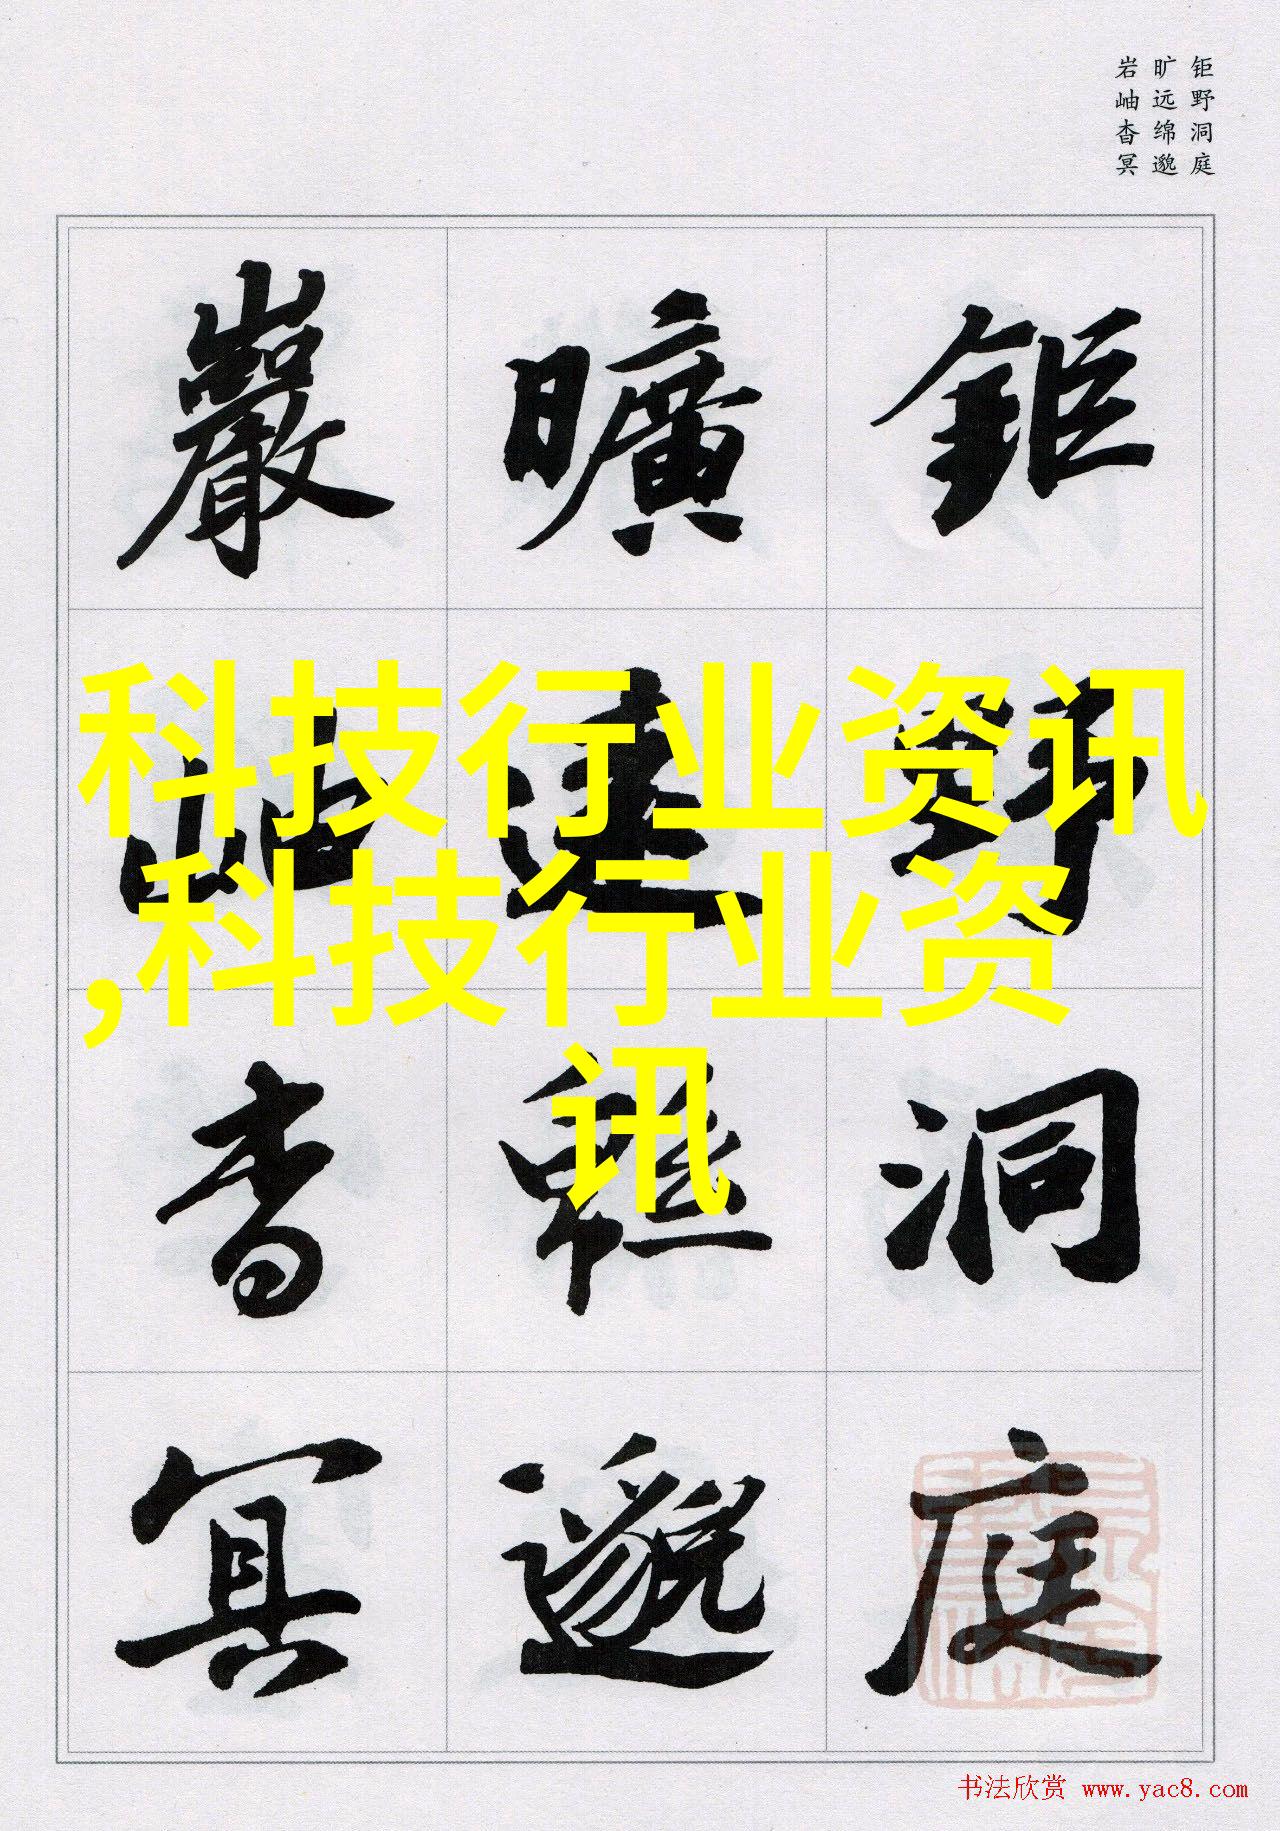 钜野洞庭
旷远绵邈
岩岫杳冥
鉅野洞庭
曠遠緜邈
巖岫杳冥
科技行业资讯
,科技行业资
讯
书法欣赏 www.yac8.com